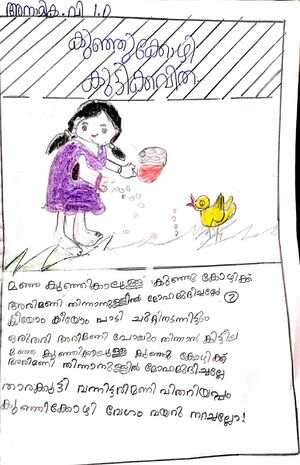 അനാമിക.വി 1.D
കുഞ്ഞിക്കോഴി
കുട്ടിക്കവിത
മഞ്ഞ കുഞ്ഞികാലുള്ള കുഞ്ഞു കോഴിക്ക്
അരിമണി തിന്നാനുള്ളിൽ മോഹമുദിച്ചല്ലോ ②
കീയോം കീയോം പാടി ചുറ്റിനടന്നിട്ടും
ഒരുതരി അരിമണി പോലും തിന്നാൻ കിട്ടീല
മഞ്ഞ കുഞ്ഞികാലുള്ള കുഞ്ഞു കോഴിക്ക്
അരിമണി തിന്നാനുള്ളിൽ മോഹമുദിച്ചല്ലോ
താരക്കുട്ടി വന്നിട്ടരിമണി വിതറിയപ്പം
കുഞ്ഞിക്കോഴി വേഗം വയറു നറച്ചല്ലോ!